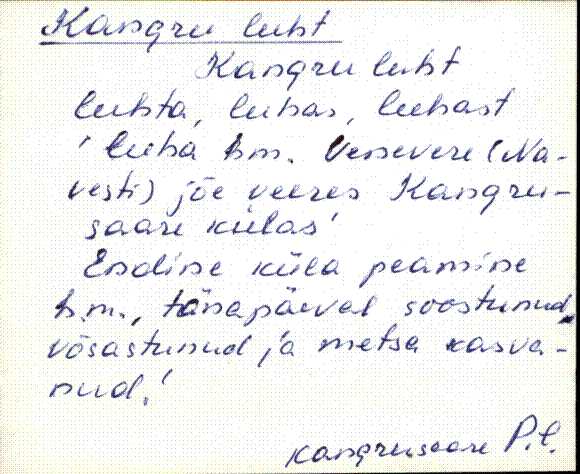 Kangru luht
Kangru luht
luhta, luhas, luhast
'luha h.m. Venevere (Na-
vesti) jõe veeres Kangru-
saare külas'
Endine küla peamine
h.m., tänapäeval soostunud,
võsastunud ja metsa kasva-
nud.'
Kangrusaare P.C.